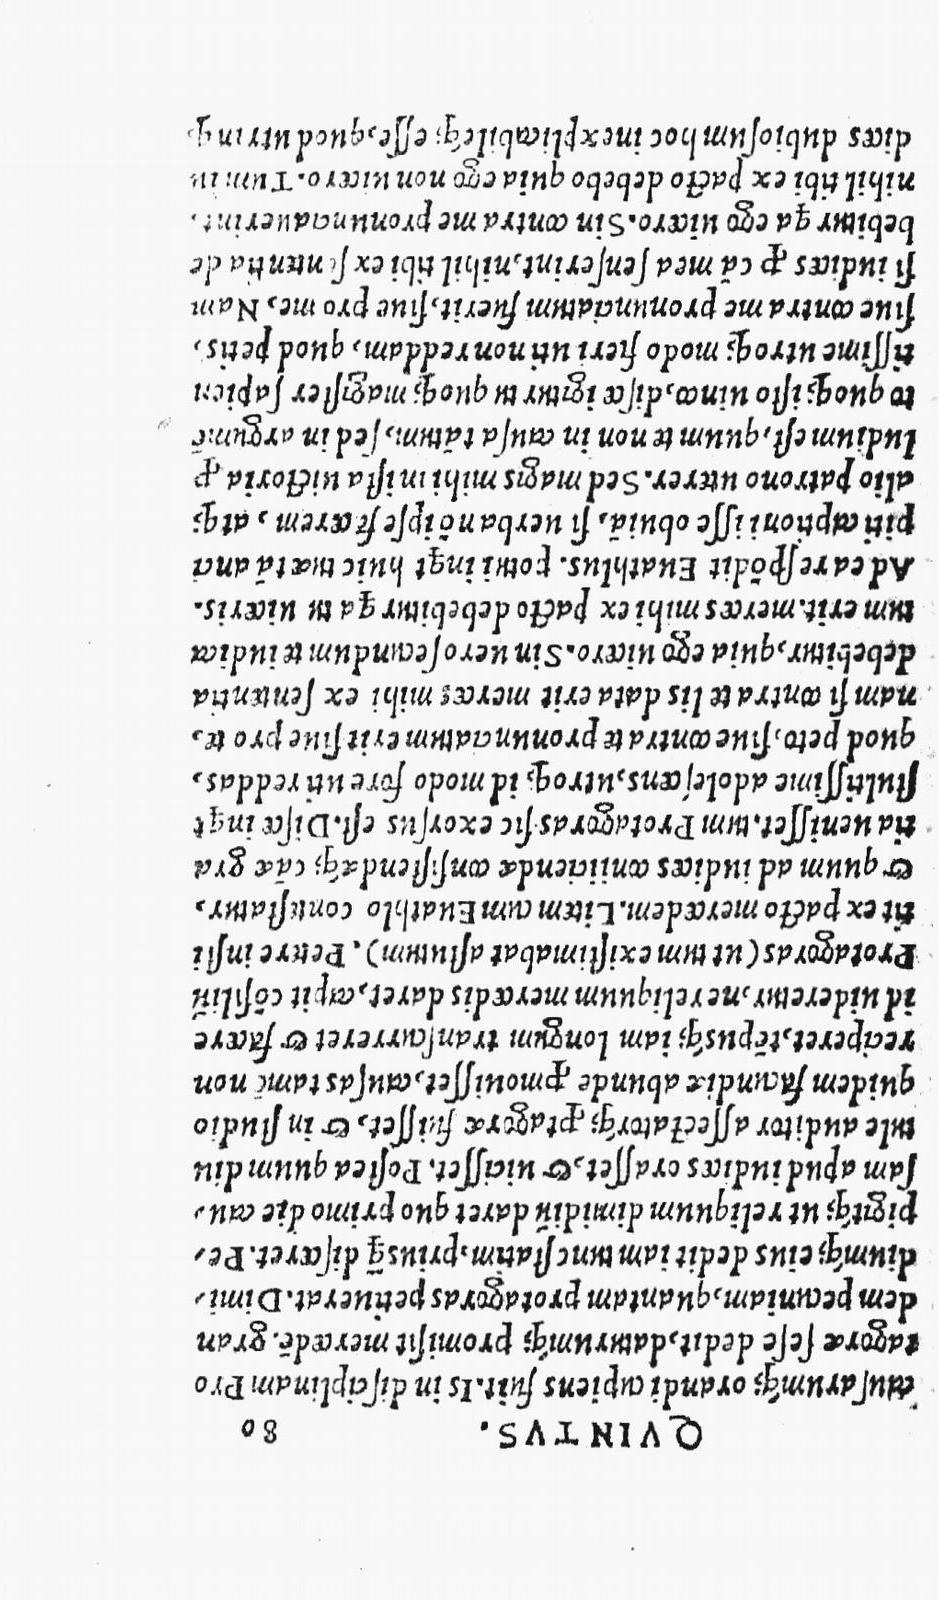 QVINTVS. 80
cauſarumq́; orandi cupiens fuit. Is in diſciplinam Pro
tagoræ ſeſe dedit, daturumq́; promiſit mercedē. gran
dem pecuniam, quantam protagoras petiuerat. Dimi,
diumq́; eius dedit iam tunc ſtatim, prius ꝗ̃ diſceret. Pe,
pigitq́; ut reliquum dimidiũ daret quo primo die cau,
ſam apud iudices oraſſet, & uiciſſet. Poſtea quum diu
tule auditor aſſectatorq́; ꝓtagoræ fuiſſet, & in ſtudio
quidem facundiæ abunde ꝓmouiſſet, cauſas tamē non
reciperet, tēpusq́; iam longum tranſcurreret & facere
id uideretur, ne reliquum mercedis daret, capit cōſiliũ
Protagoras (ut tum exiſtimabat aſtutum). Petere inſti
tit ex pacto mercedem. Litem cum Euathlo conteſtatur,
& quum ad iudices coniiciendæ conſiſtendæq́; cāe gra
tia ueniſſet. tum Protagoras ſic exorſus eſt. Diſce inqt
ſtultiſſime adoleſcens, utroq; id modo fore uti reddas,
quod peto, ſiue contra te pronunciatum erit ſiue pro te,
nam ſi contra te lis data erit merces mihi ex ſententia
debebitur, quia ego uicero. Sin uero ſecundum te iudica
tum erit. merces mihi ex pacto debebitur ꝗa tu uiceris.
Ad ea reſpōdit Euathlus. potui inqt huic tuæ tā anci
piti captioni iſſe obuiā, ſi uerba nō ipſe facerem, atq;
alio patrono uterer. Sed magis mihi in iſta uictoria ꝓ
ludium eſt, quum te non in cauſa tātum, ſed in argumē
to quoq; iſto uinco, diſce igitur tu quoq; magiſter ſapien
tiſſime utroq; modo fieri uti non reddam, quod petis,
ſiue contra me pronunciatum fuerit, ſiue pro me, Nam
ſi iudices ꝓ cā mea ſenſerint, nihil tibi ex ſententia de
bebitur ꝗa ego uicero. Sin contra me pronunciauerint,
nihil tibi ex pacto debebo quia ego non uicero. Tum iu
dices dubioſum hoc inexplicabileq́; eſſe, quod utrinq;